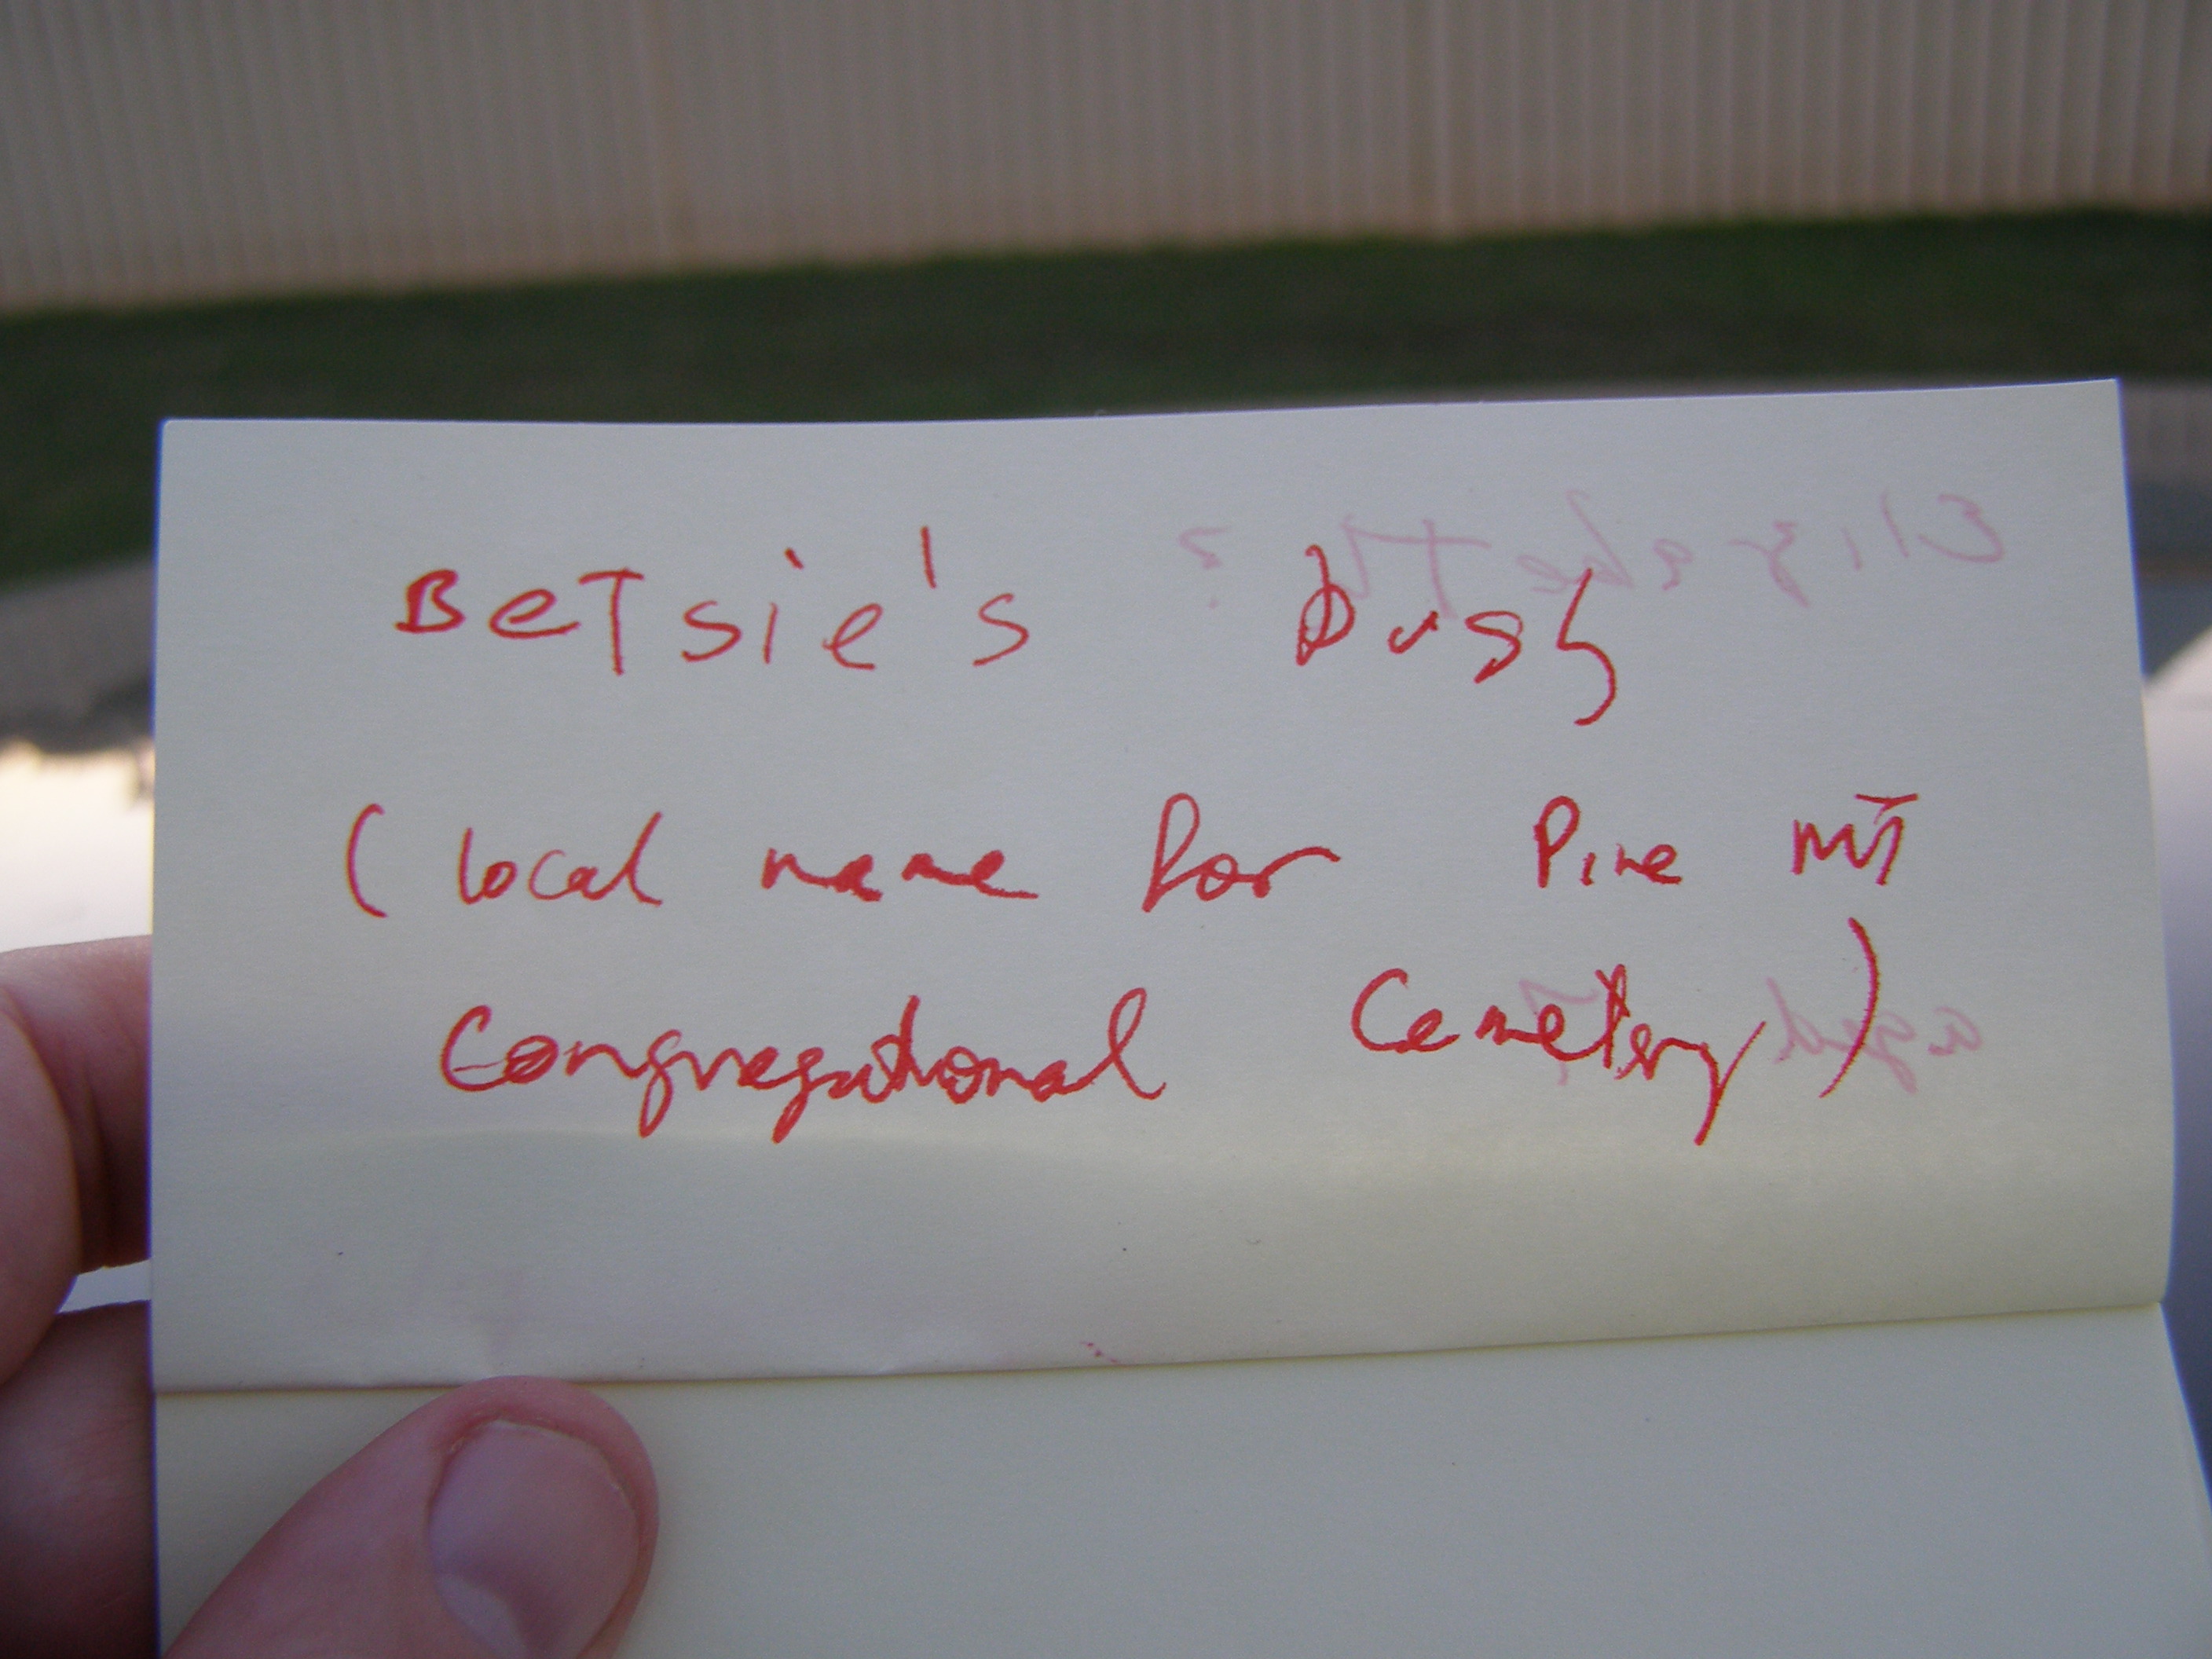 Betsie's Bush
(local name for Pine MT
Congregational Cemetery)
Elizabeth ?
aged